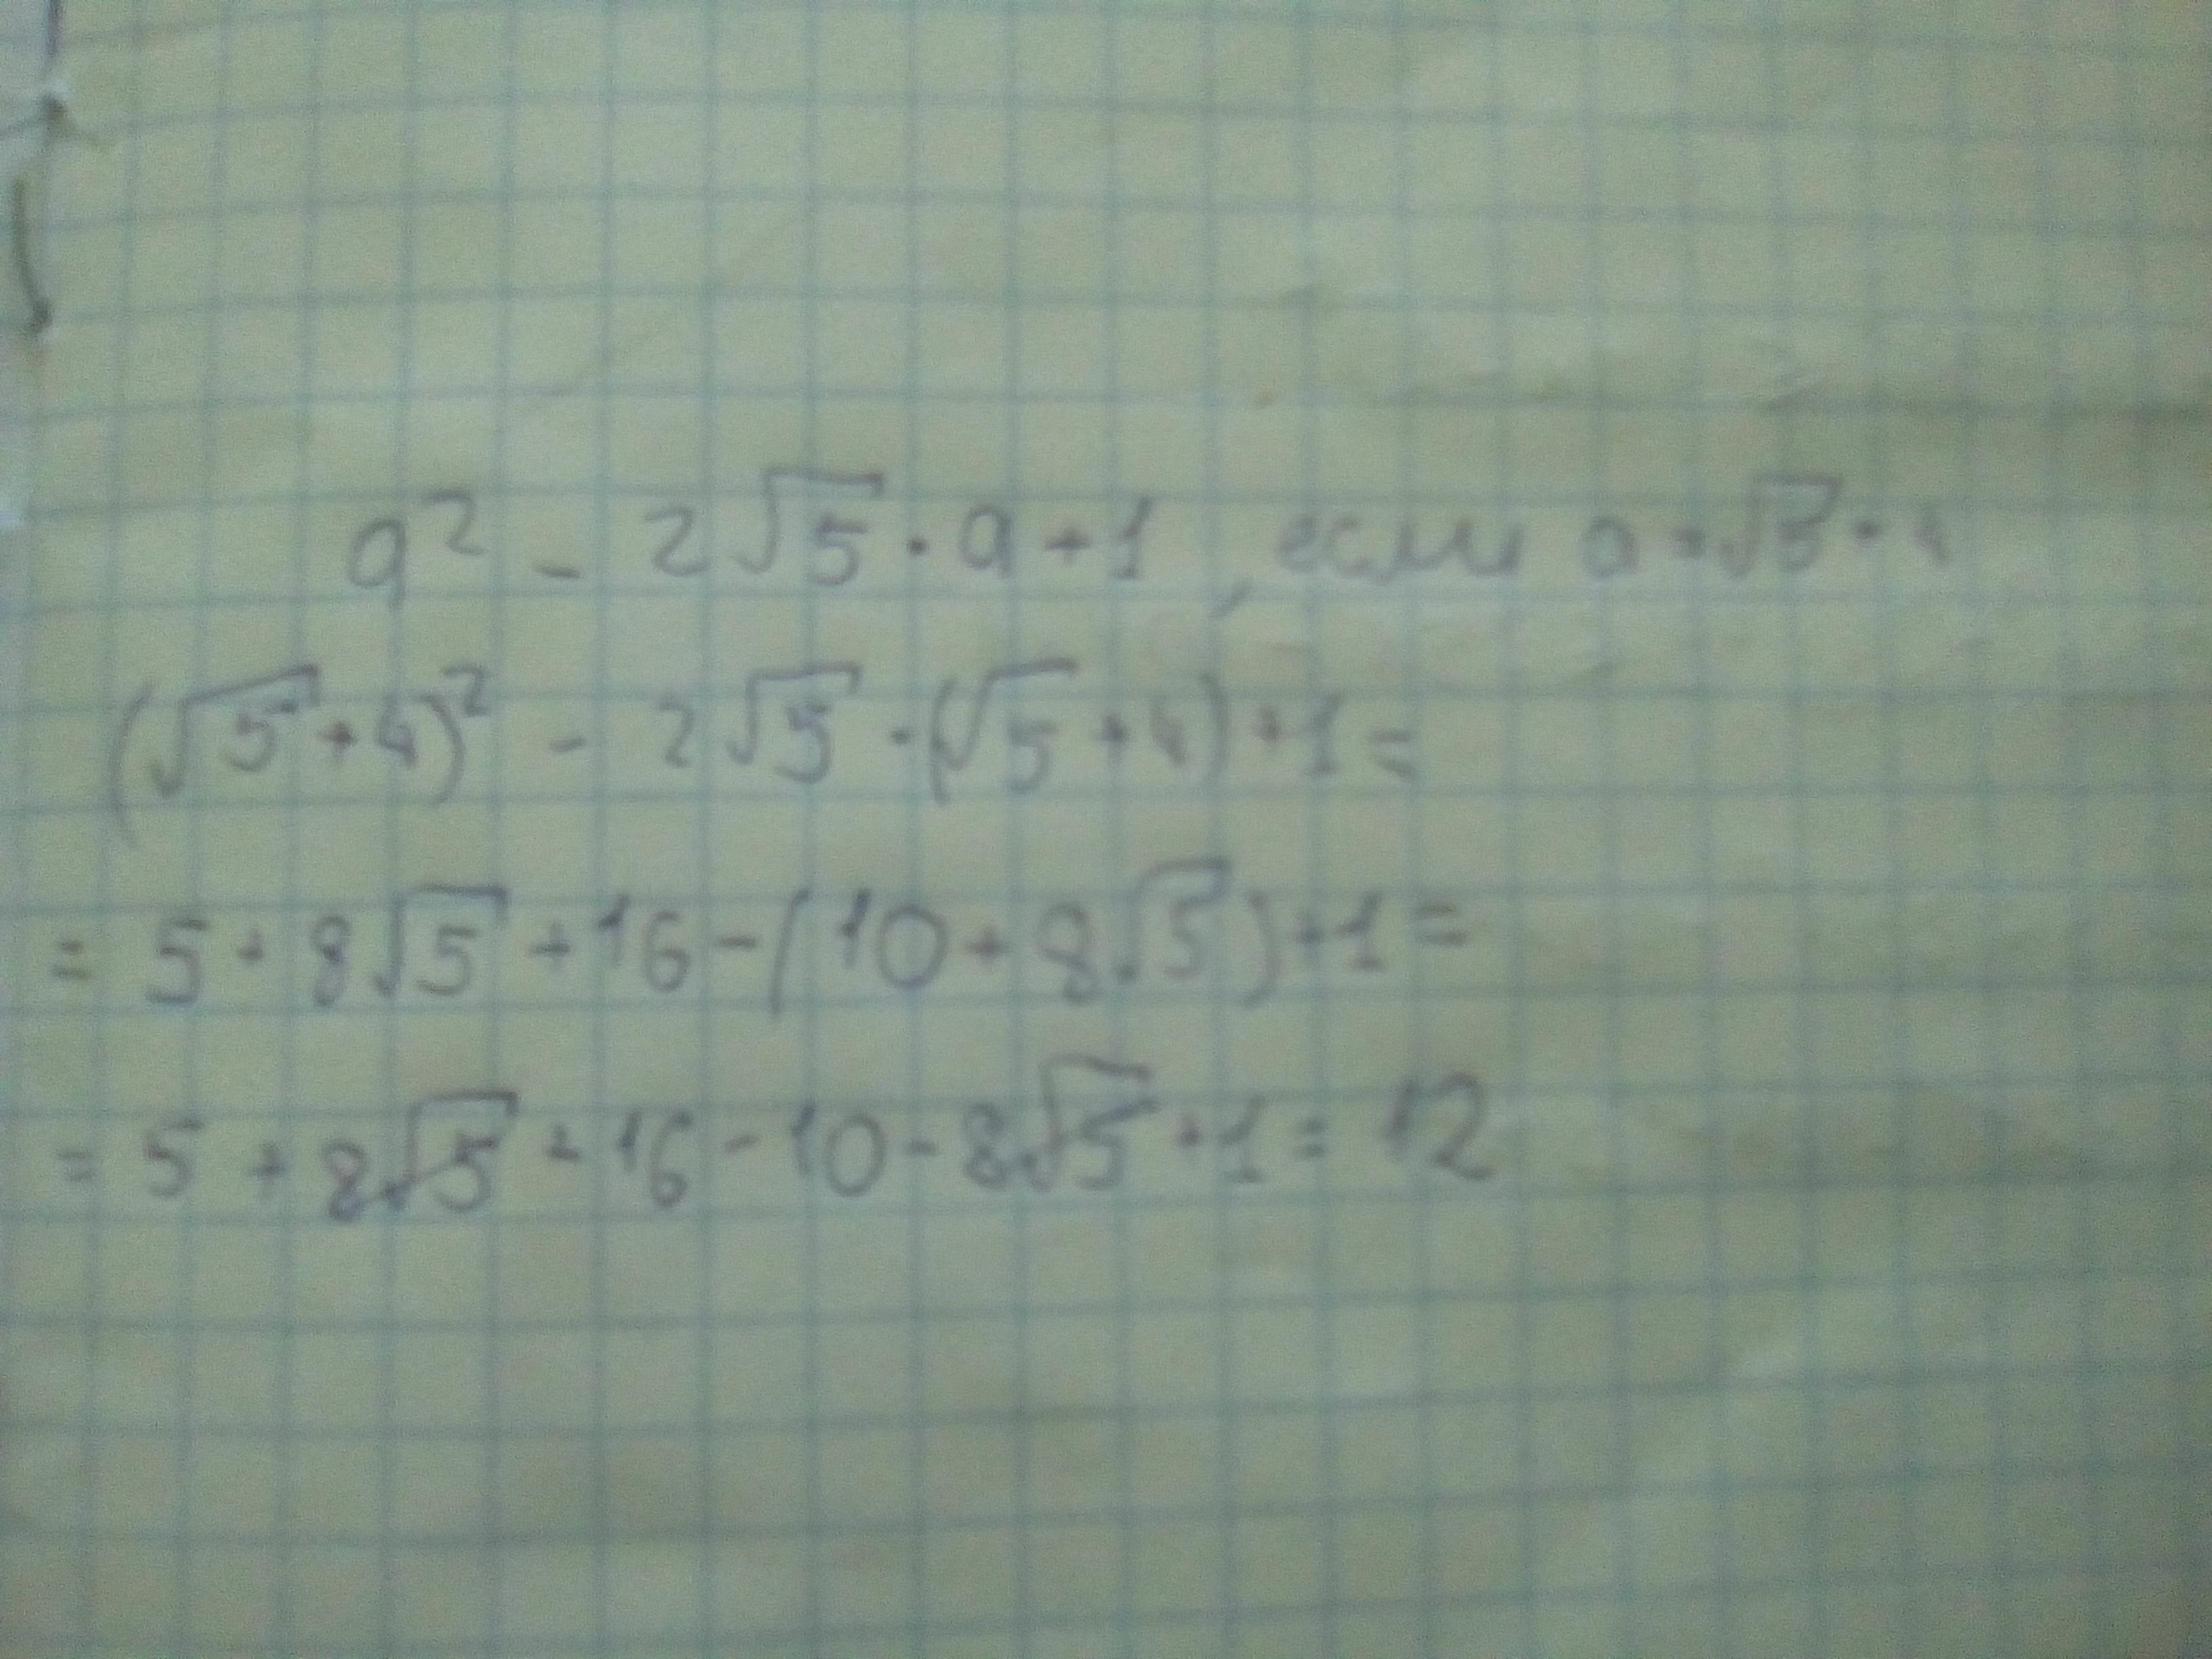 a² - 2√5 · a + 1, если a = √5 + 4
(√5 + 4)² - 2√5 · (√5 + 4) + 1 =
= 5 + 8√5 + 16 - (10 + 8√5) + 1 =
= 5 + 8√5 + 16 - 10 - 8√5 + 1 = 12